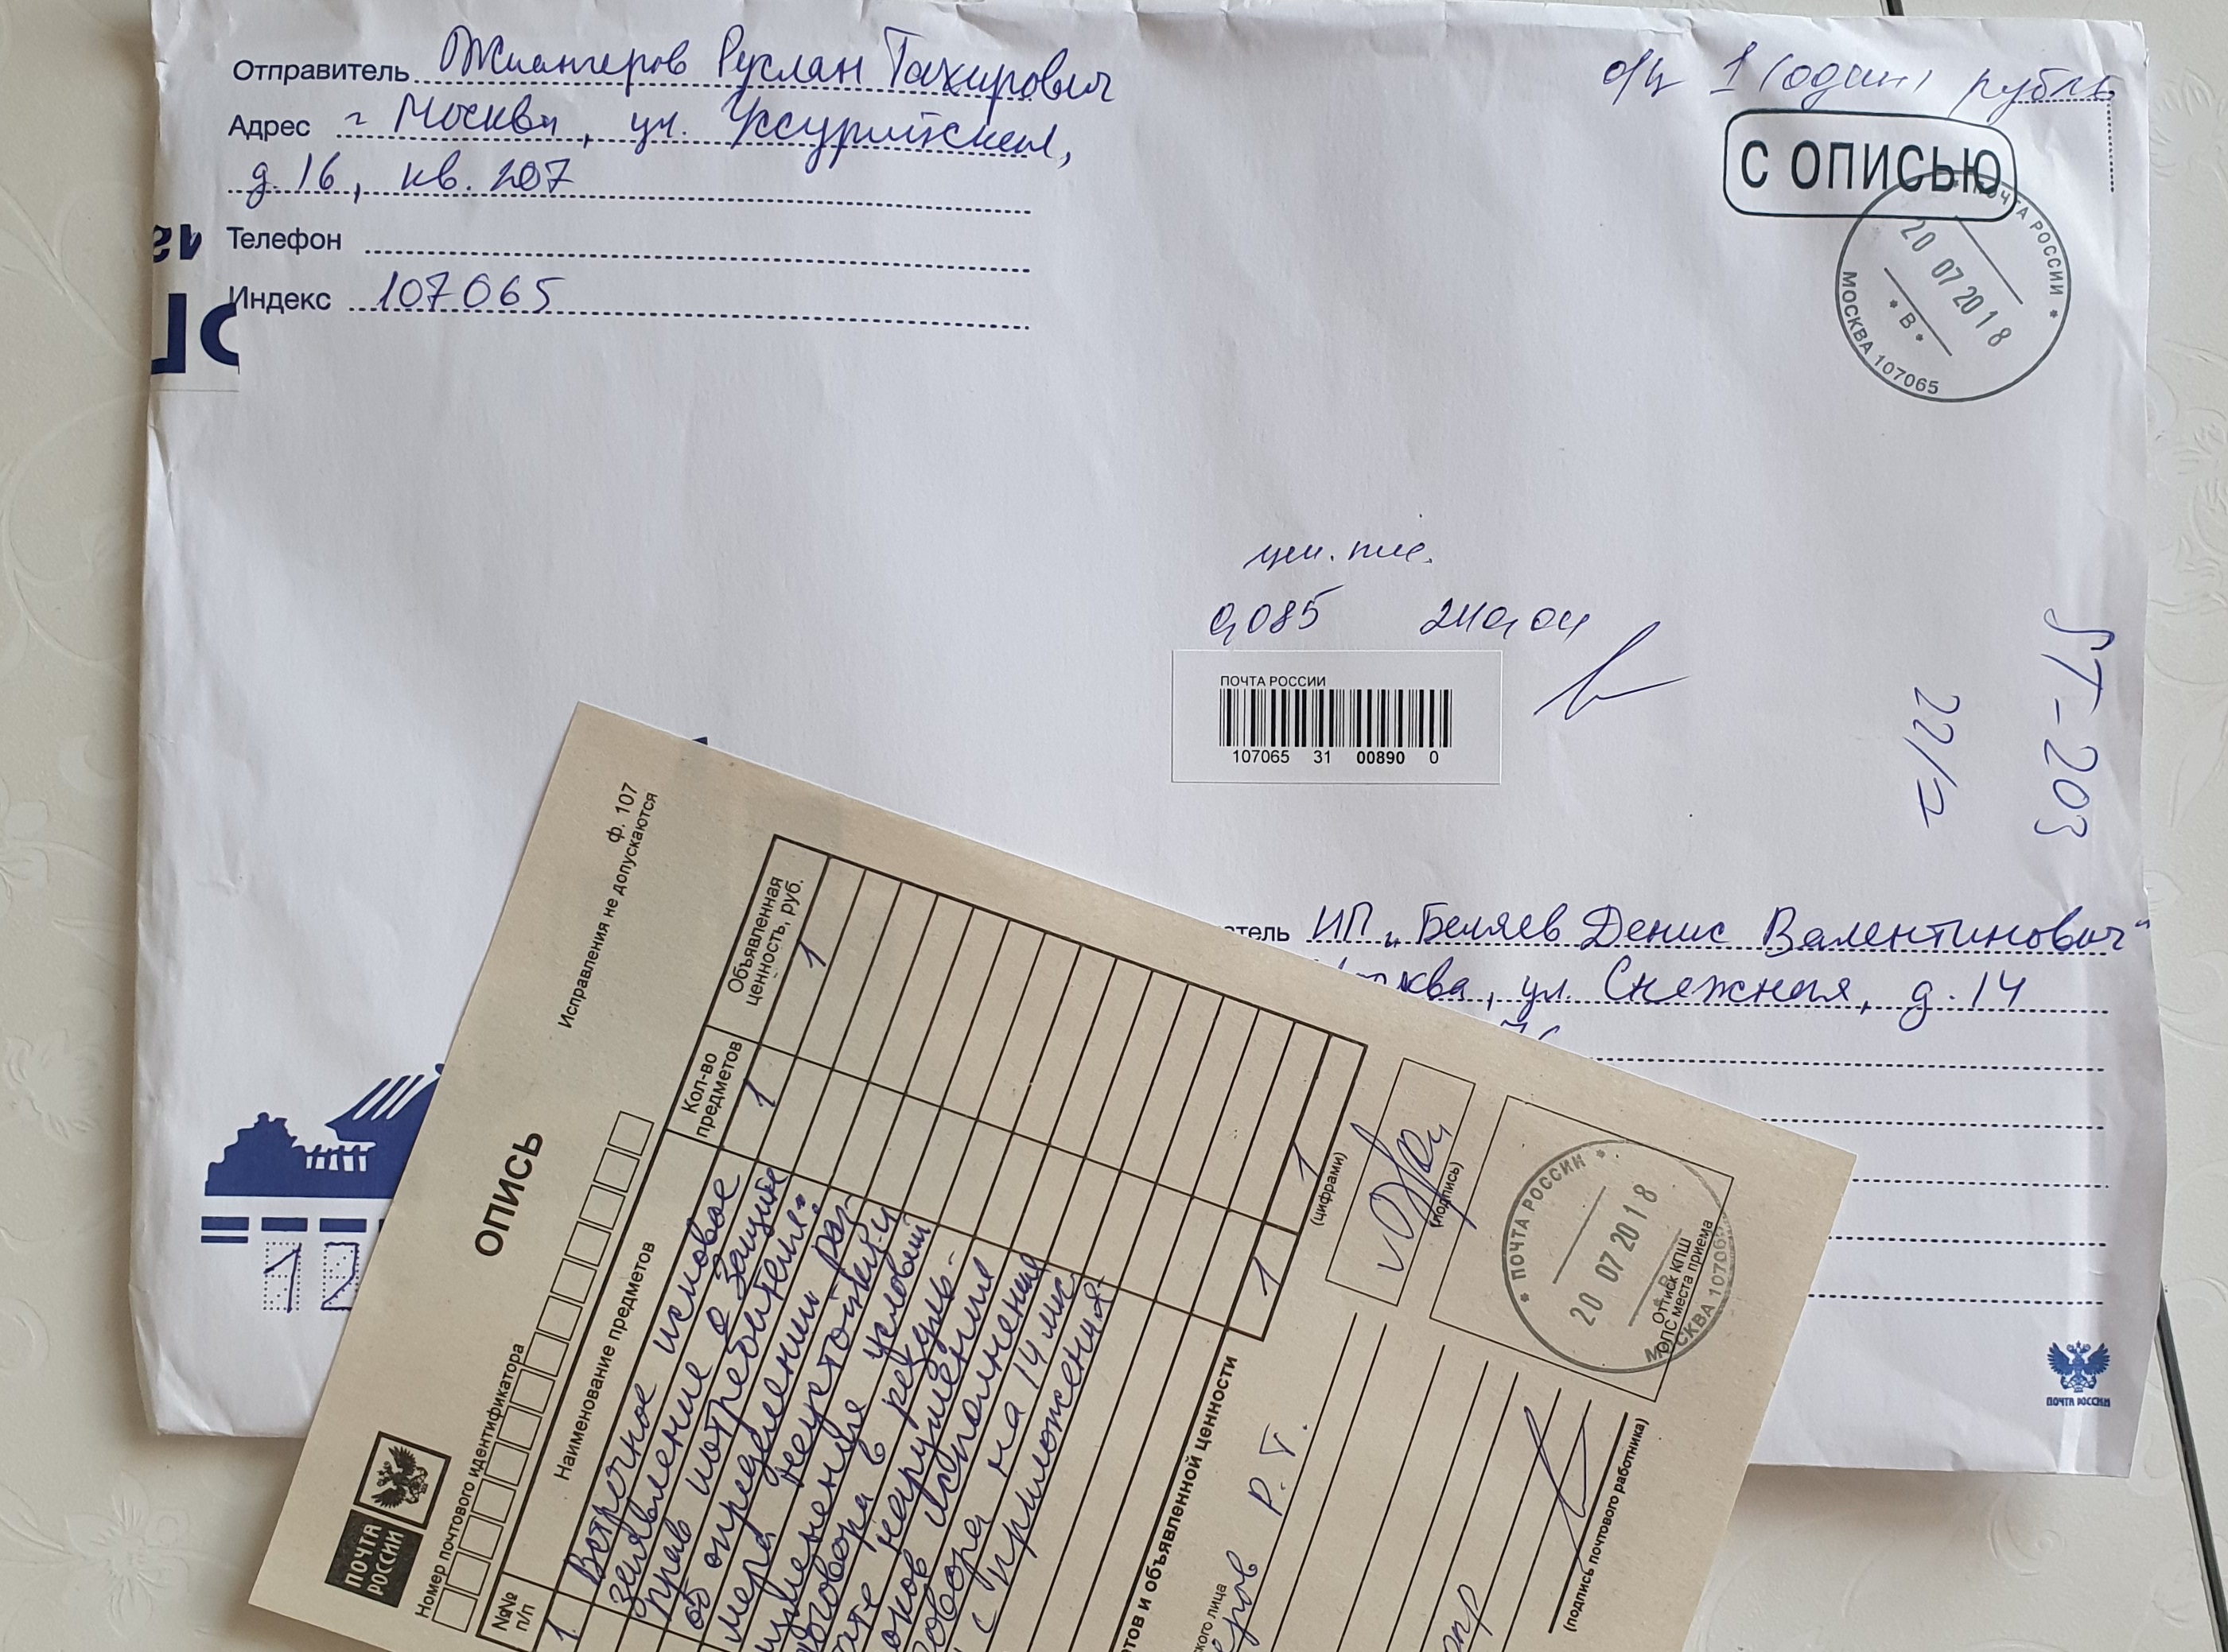 Отправитель Жиангеров Руслан Тахирович
Адрес г Москва, ул. Уссурийская,
д. 16, кв. 207
Телефон
Индекс 107065
о/ц 1 (один) рубль
С ОПИСЬЮ
ПОЧТА РОССИИ
20 07 2018
* В *
МОСКВА 107065
цен. пис.
0,085
ПОЧТА РОССИИ
107065 31 00890 0
22/7
ИП „Беляев Денис Валентинович“
ул. Снежная, д. 14
ПОЧТА РОССИИ
12
ф. 107
Исправления не допускаются
ОПИСЬ
ПОЧТА РОССИИ
Номер почтового идентификатора
№№ п/п
Наименование предметов
Кол-во предметов
Объявленная ценность, руб.
1. Встречное исковое 1 1
заявление о защите
прав потребителя:
об определении раз-
мера неустойки и
изменение условий
договора в резуль-
тате нарушения
исполнения
на 14 лис
с приложения-
и объявленной ценности 1 1
(цифрами)
Р. Т.
(подпись)
ПОЧТА РОССИИ
20 07 2018
Оттиск КПШ
ОПС места приема
(подпись почтового работника)